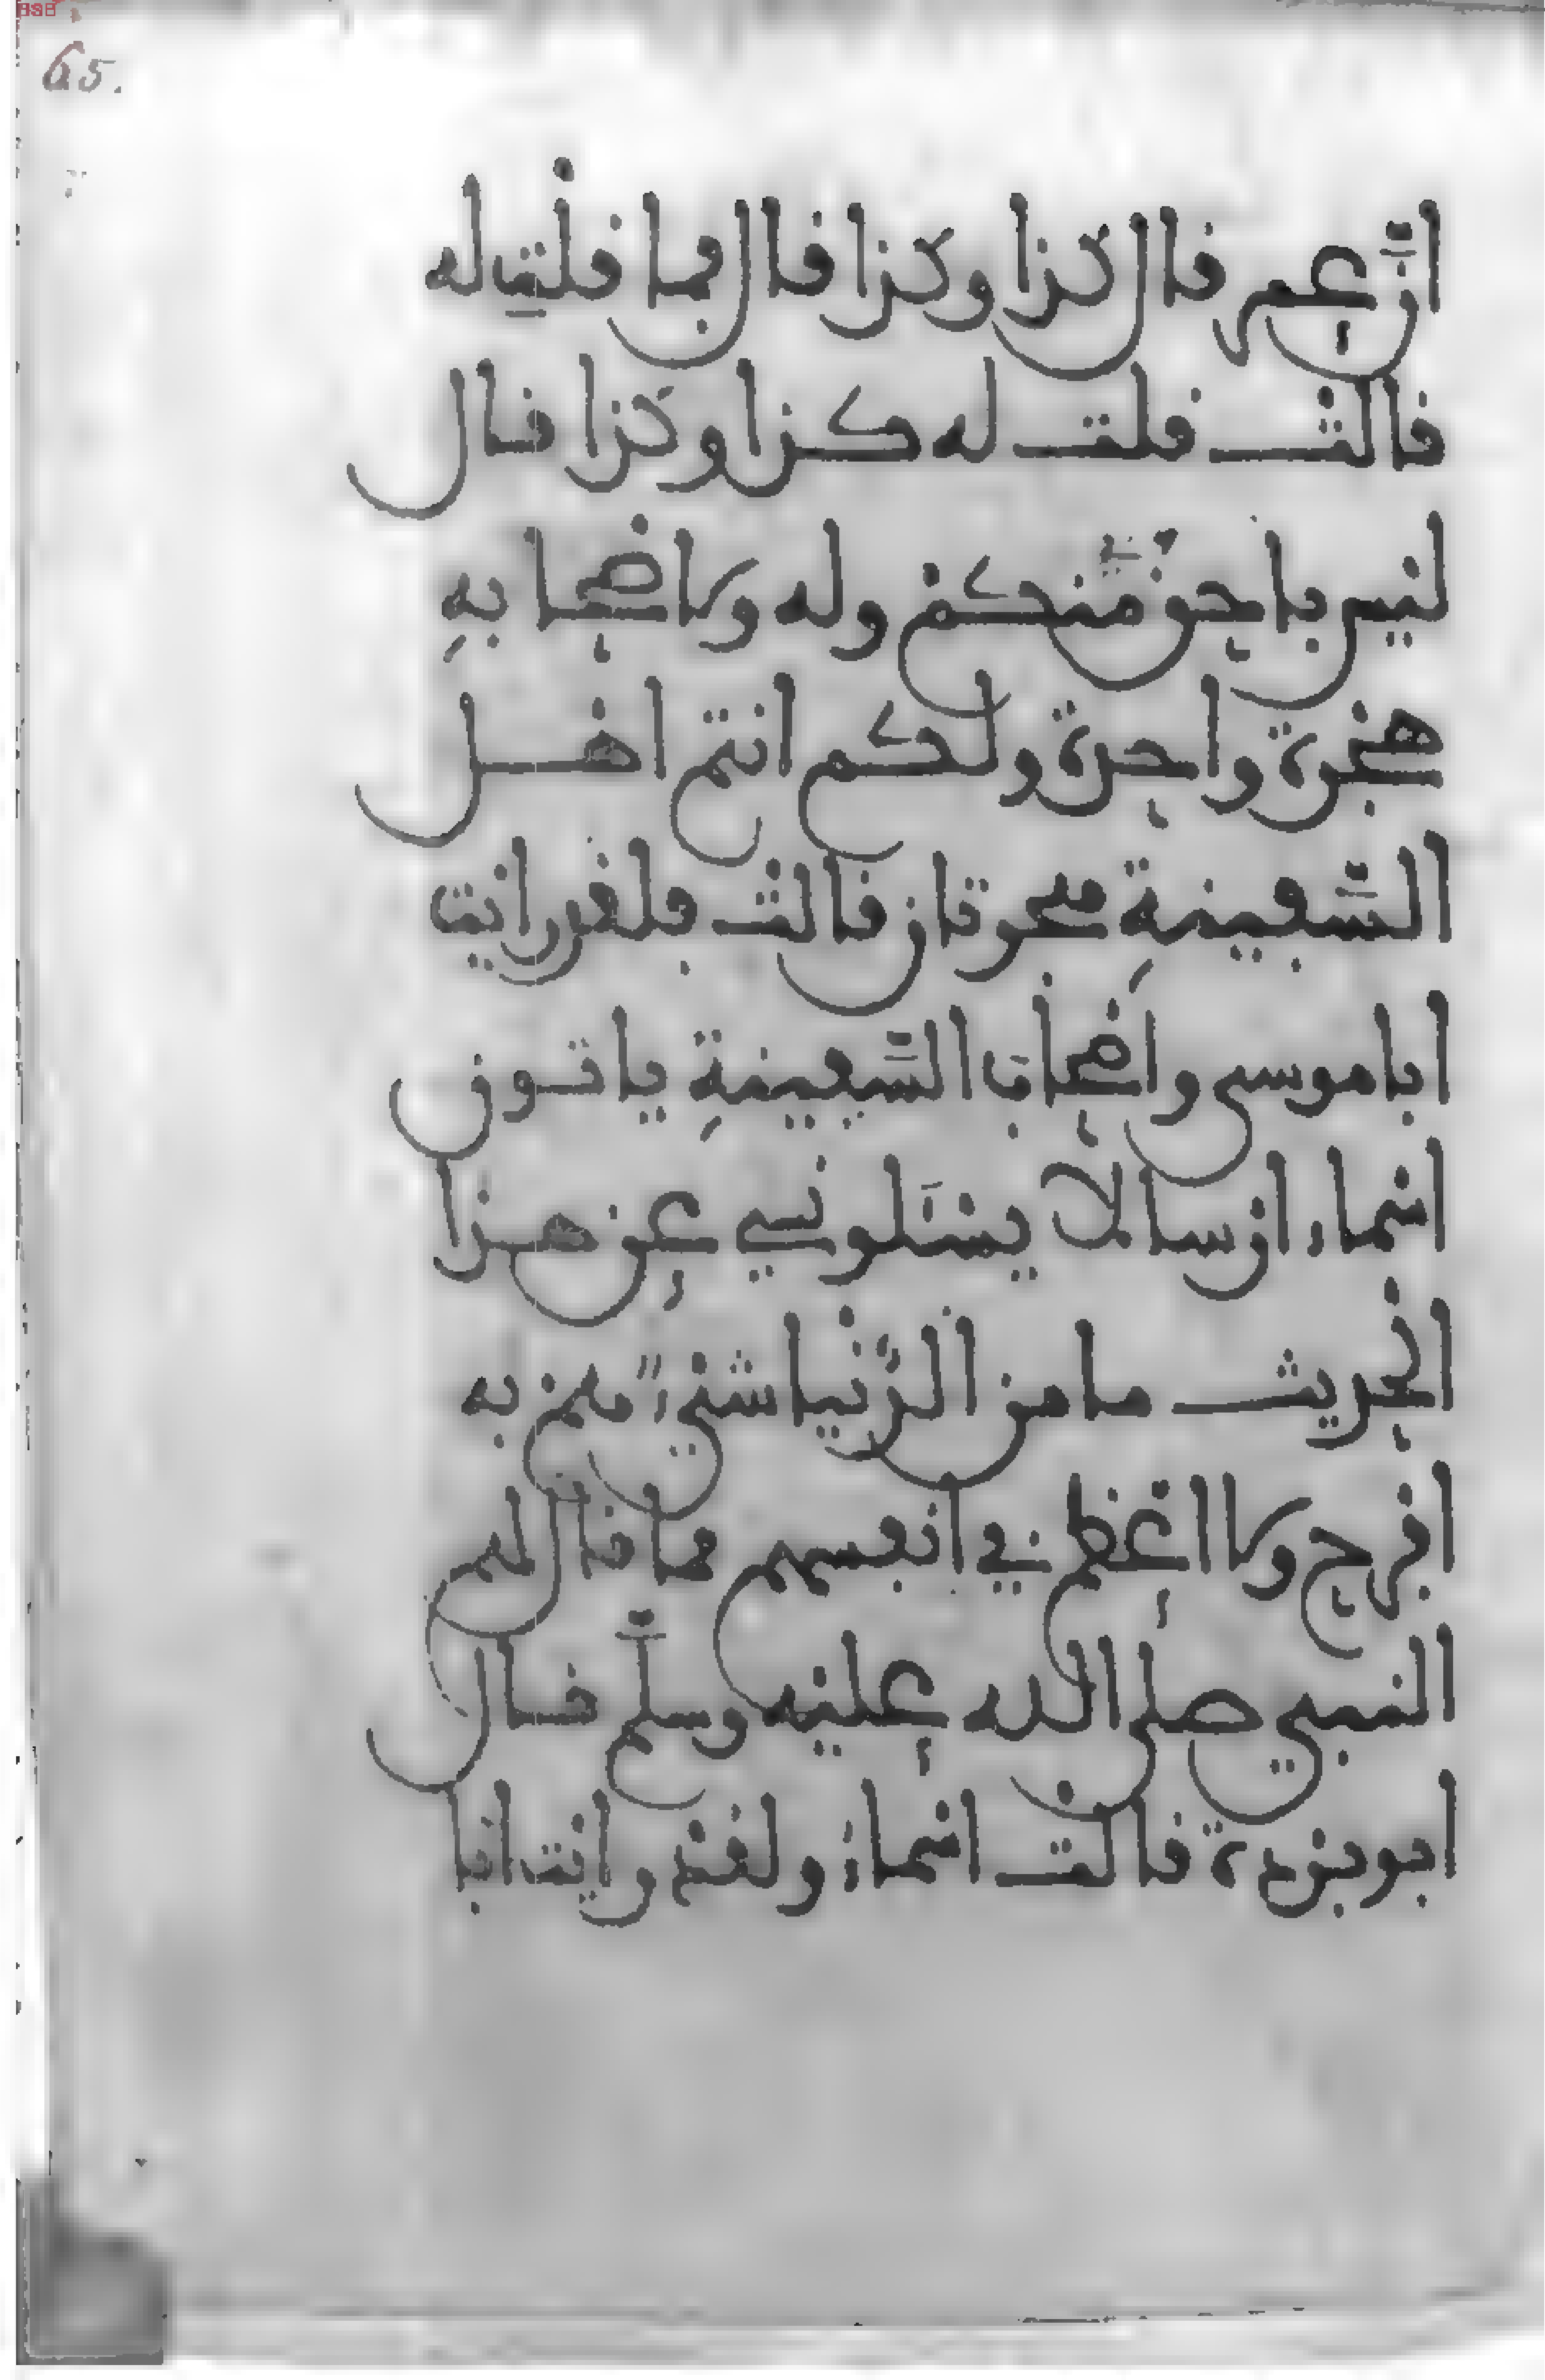 65.
انّ عمر قال كذا وكذا قال فما قلت له
قالت قلت له كذا وكذا قال
ليس باحق منكم وله ولاصحابه
هجرة واحدة ولكم انتم اهل
السّفينة هجرتان قالت فلقد رايت
ابا موسى واصحاب السّفينة ياتون
اسماء ارسالا يسئلونى عن هذا
الحديث ما من الدّنيا شىء هم به
افرح ولا اعظم في انفسهم مما قال لهم
النبي صلى الله عليه وسلّم قال
ابو بردة قالت اسماء ولقد رايت ابا